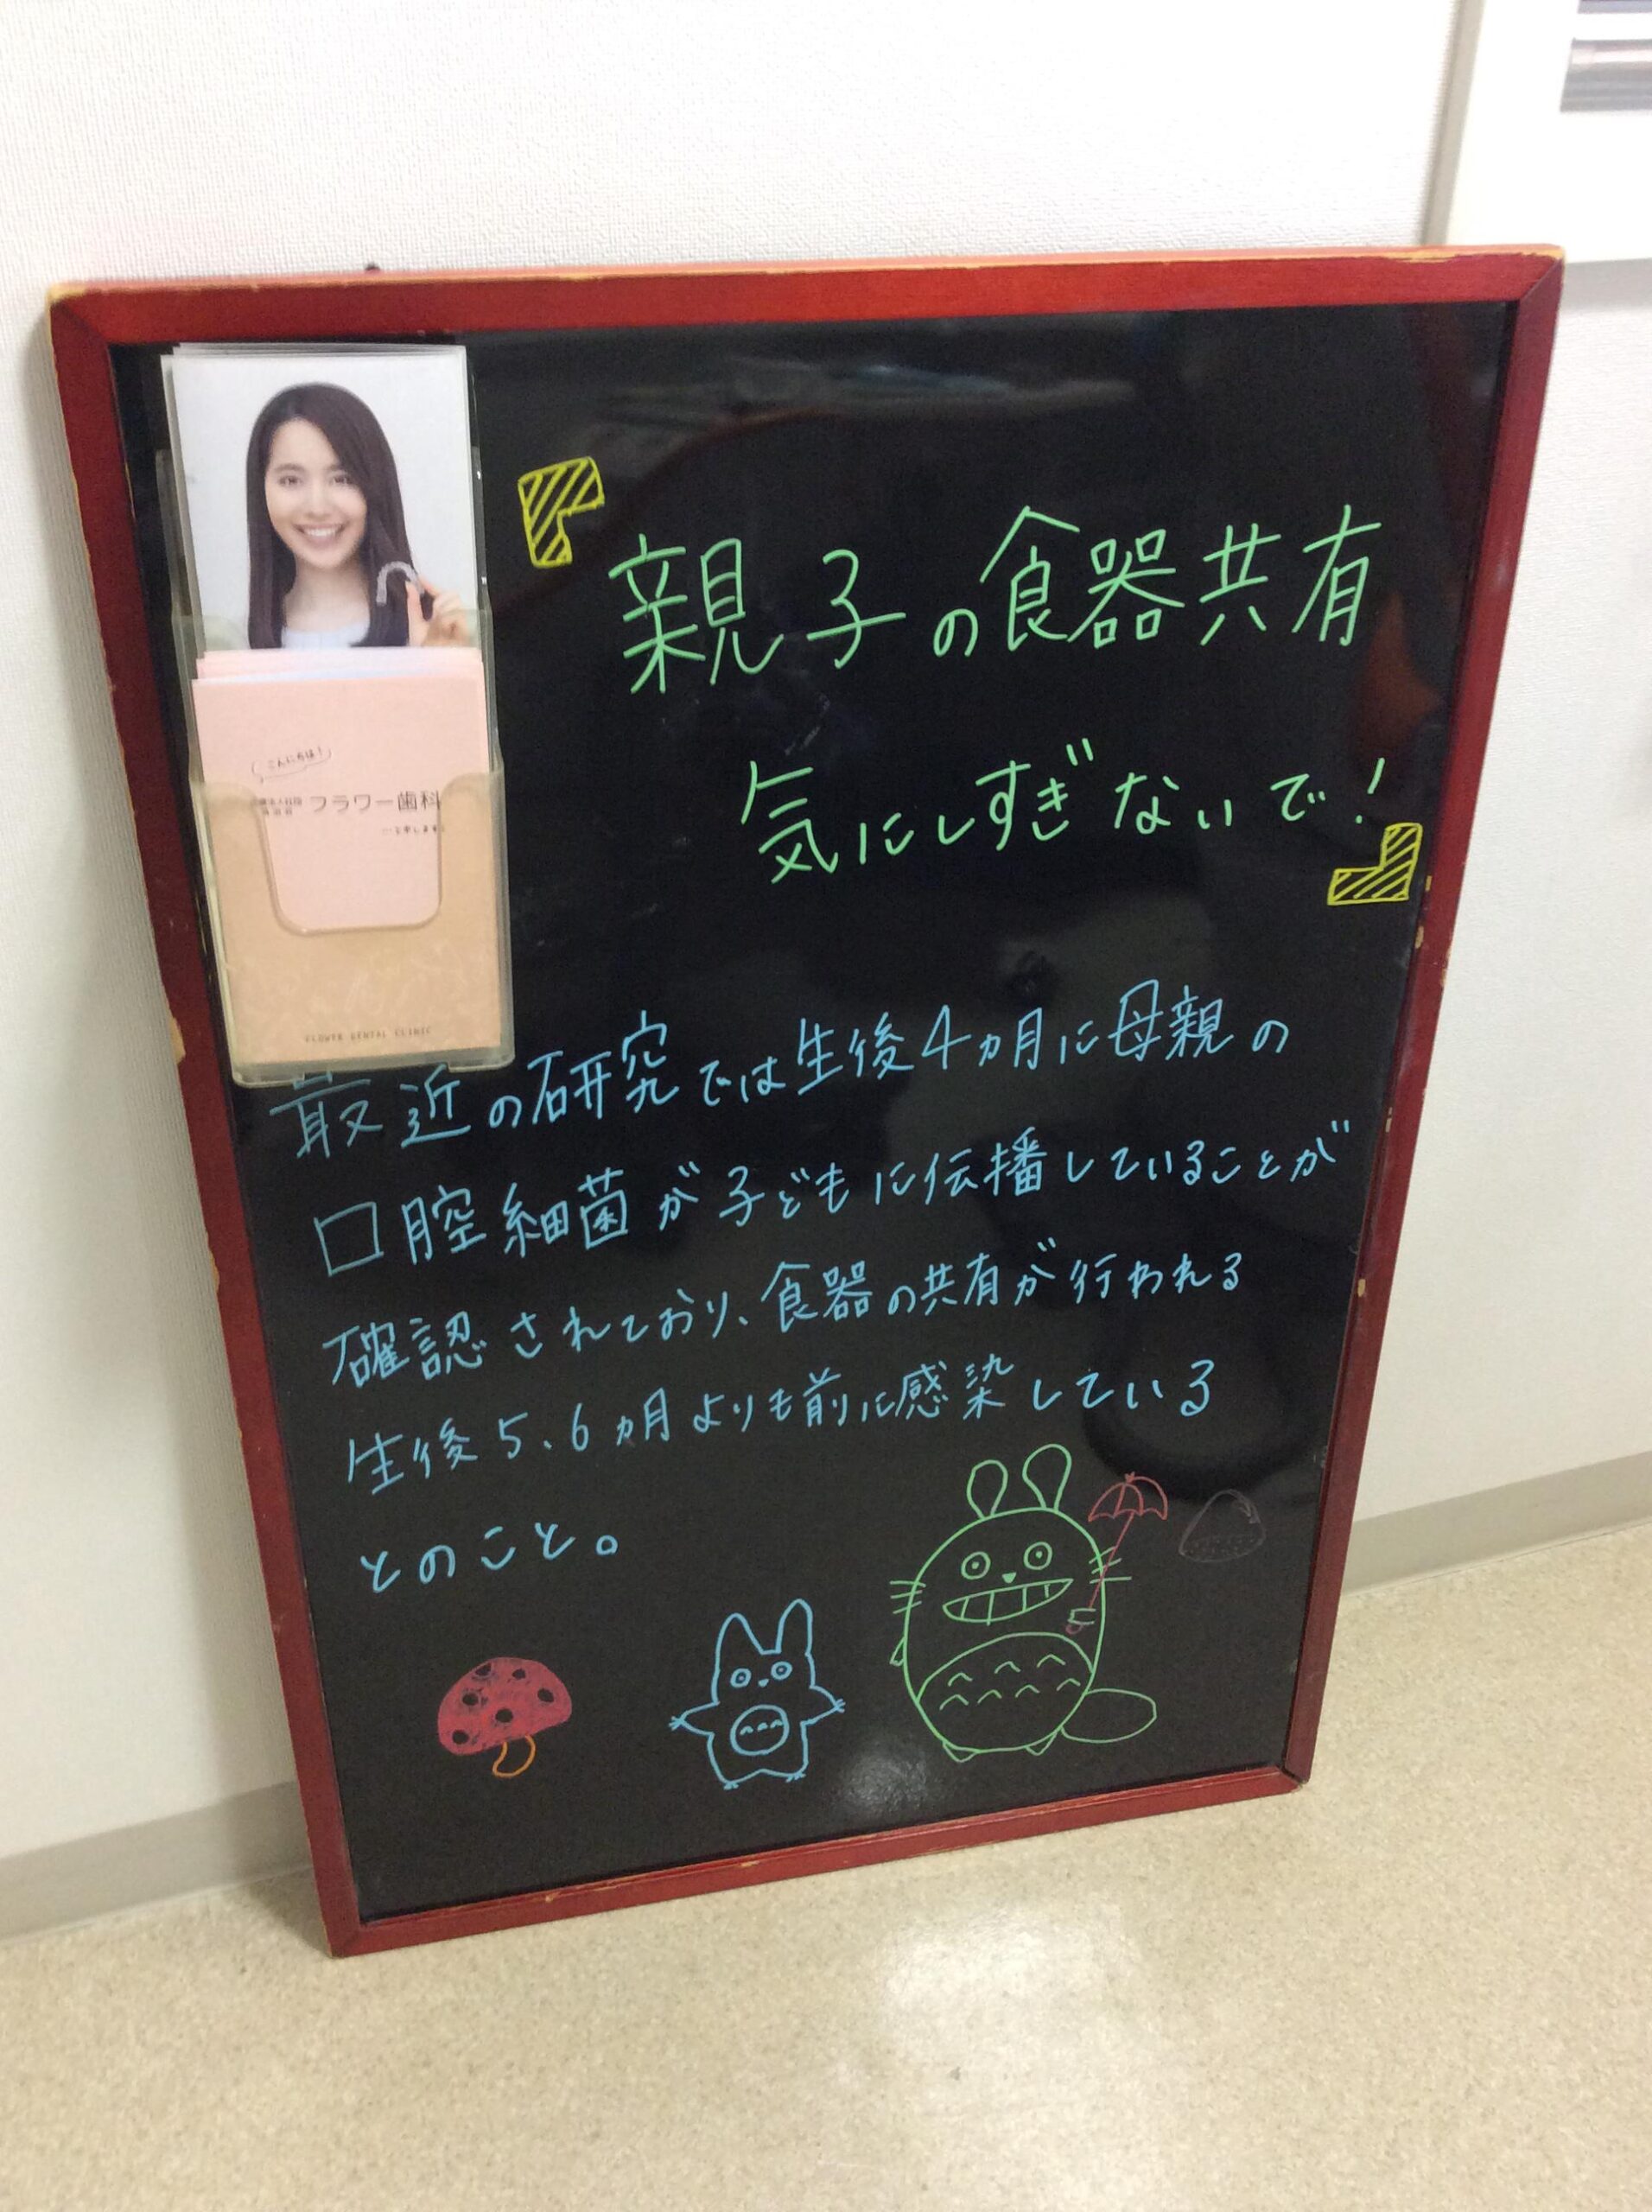 親子の食器共有
気にしすぎないで！
こんにちは！
フラワー歯科
と申します
FLOWER DENTAL CLINIC
最近の研究では生後4ヵ月に母親の
口腔細菌が子どもに伝播していることが
確認されており、食器の共有が行われる
生後5、6ヵ月よりも前に感染している
とのこと。